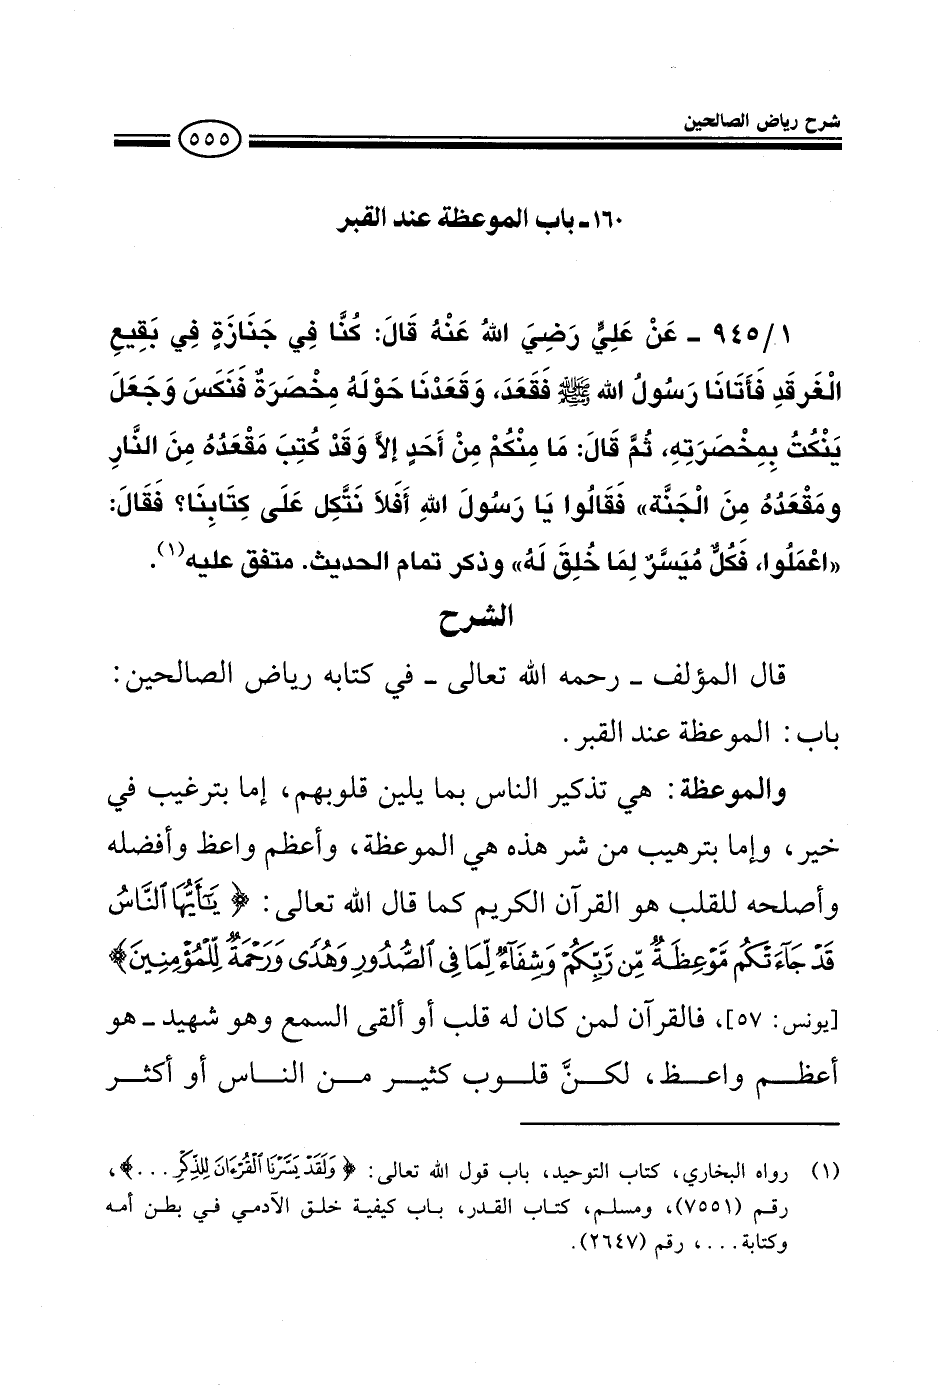 شرح رياض الصالحين
٥٥٥
١٦٠ـ باب الموعظة عند القبر
٩٤٥/١ ـ عَنْ عَلِيٍّ رَضِيَ اللهُ عَنْهُ قَالَ: كُنَّا فِي جَنَازَةٍ فِي بَقِيعِ
الْغَرقَدِ فَأَتَانَا رَسُولُ الله ﷺ فَقَعَدَ، وَقَعَدْنَا حَوْلَهُ مِخْصَرَةٌ فَنَكَسَ وَجَعَلَ
يَنْكُتُ بِمِخْصَرَتِهِ، ثُمَّ قَالَ: مَا مِنْكُمْ مِنْ أَحَدٍ إلاَّ وَقَدْ كُتِبَ مَقْعَدُهُ مِنَ النَّارِ
ومَقْعَدُهُ مِنَ الْجَنَّة» فَقَالُوا يَا رَسُولَ اللهِ أَفَلاَ نَتَّكِل عَلَى كِتَابِنَا؟ فَقَالَ:
«اعْمَلُوا، فَكُلٌّ مُيَسَّرٌ لِمَا خُلِقَ لَهُ» وذكر تمام الحديث. متفق عليه(١).
الشرح
قال المؤلف ـ رحمه الله تعالى ـ في كتابه رياض الصالحين:
باب: الموعظة عند القبر.
والموعظة: هي تذكير الناس بما يلين قلوبهم، إما بترغيب في
خير، وإما بترهيب من شر هذه هي الموعظة، وأعظم واعظ وأفضله
وأصلحه للقلب هو القرآن الكريم كما قال الله تعالى: ﴿ يَٰٓأَيُّهَا ٱلنَّاسُ
قَدْ جَآءَتْكُم مَّوْعِظَةٌ مِّن رَّبِّكُمْ وَشِفَآءٌ لِّمَا فِى ٱلصُّدُورِ وَهُدًى وَرَحْمَةٌ لِّلْمُؤْمِنِينَ ﴾
[يونس: ٥٧]، فالقرآن لمن كان له قلب أو ألقى السمع وهو شهيد ـ هو
أعظم واعظ، لكنَّ قلوب كثير من الناس أو أكثر
(١) رواه البخاري، كتاب التوحيد، باب قول الله تعالى: ﴿ وَلَقَدْ يَسَّرْنَا ٱلْقُرْءَانَ لِلذِّكْرِ ... ﴾،
رقم (٧٥٥١)، ومسلم، كتاب القدر، باب كيفية خلق الآدمي في بطن أمه
وكتابة ...، رقم (٢٦٤٧).